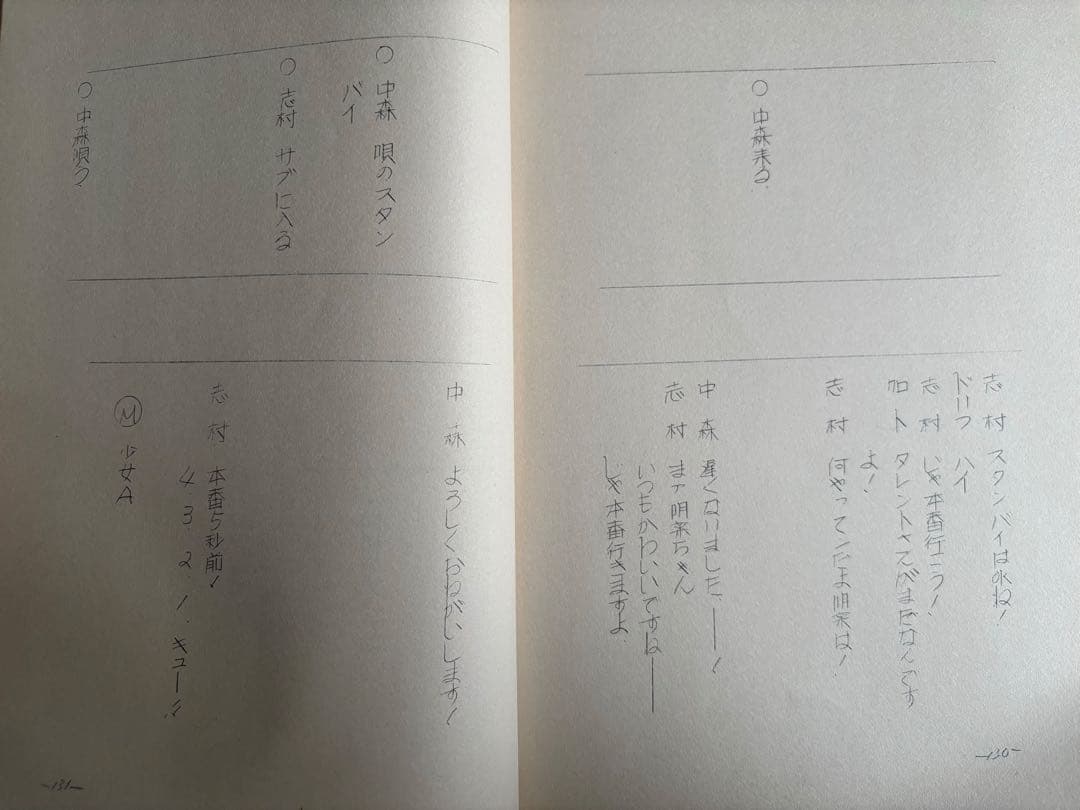 ○ 中森来る.
志村 スタンバイはOKね!
ドリフ ハイ
志村 じゃ本番行こう!
加ト タレントさんがまだなんです
よ!
志村 何やってンだよ明菜は!
中森 遅くなりましたァ――!
志村 まァ明菜ちゃん
いつもかわいいですねー――
じゃ本番行きますよ.
-130-
○ 中森 唄のスタン
バイ
○ 志村 サブに入る
○ 中森唄う.
中森 よろしくおねがいします!
志村 本番5秒前!
4.3.2.1.キュー!!
Ⓜ 少女A
-131-